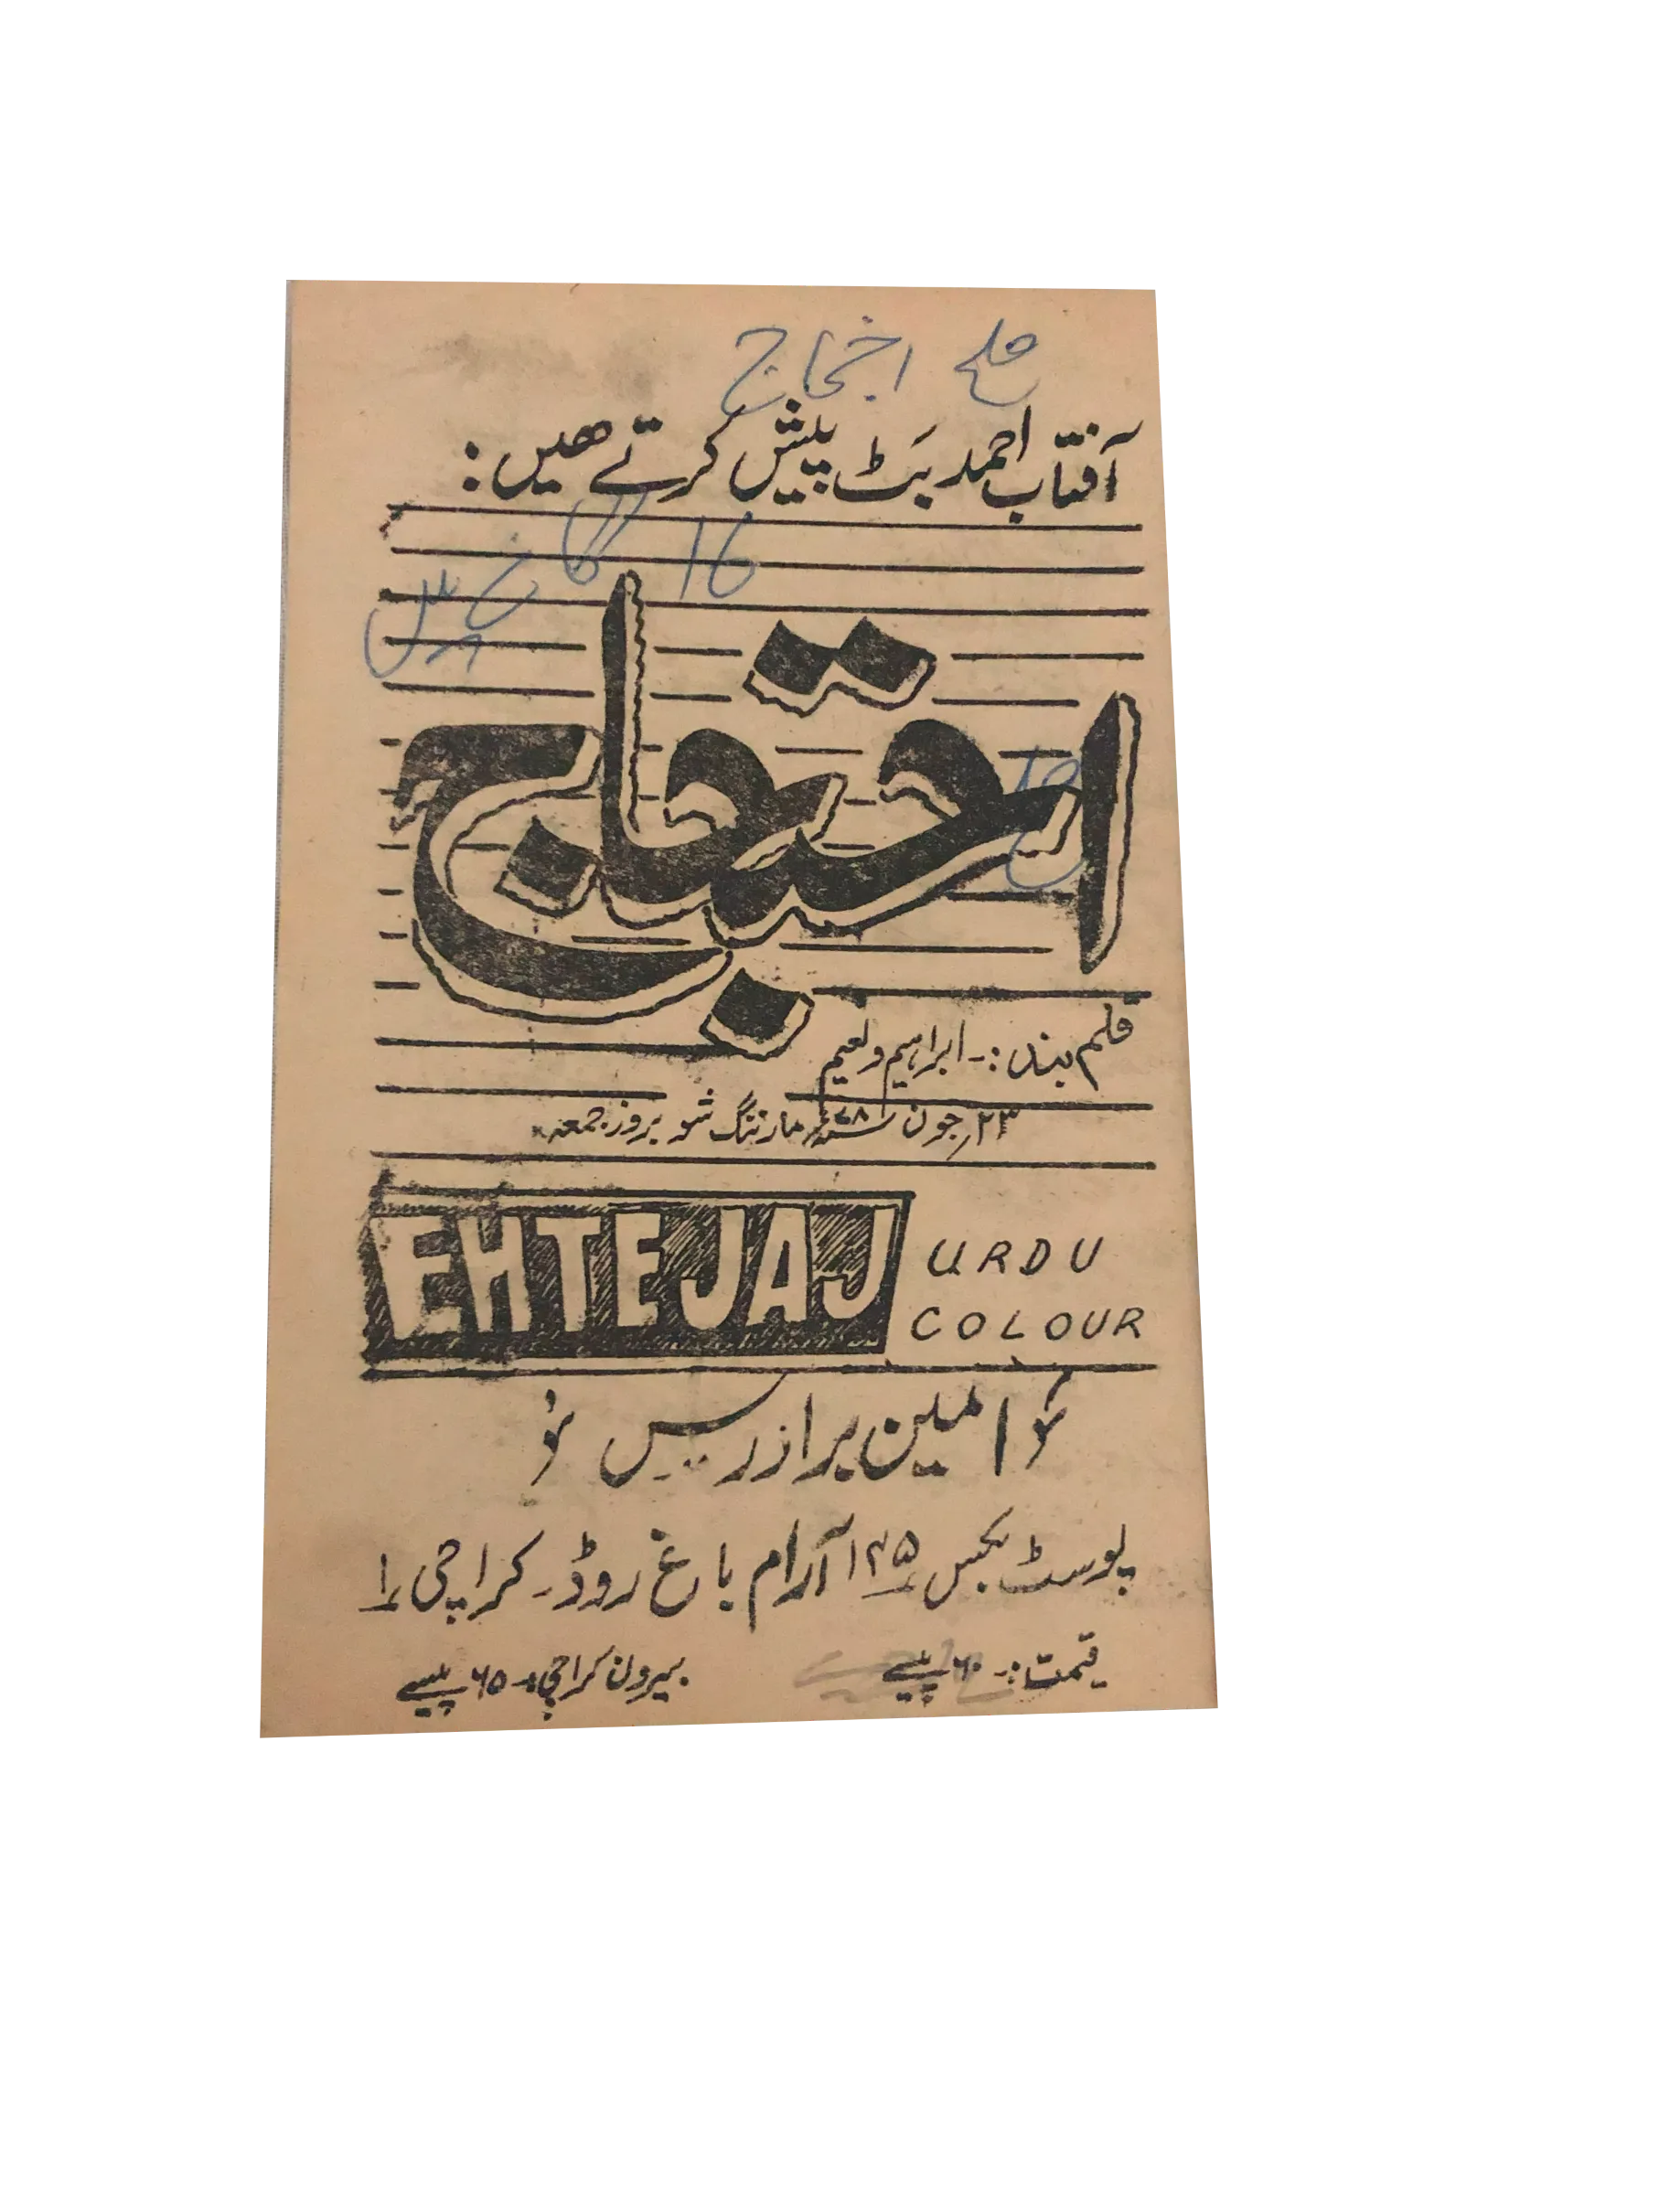 فلم احتجاج
آفتاب احمد بَٹ پیش کرتے ھیں:
کا
احتجاج
قلم بند:۔ ابراہیم و نعیم
۲۳؍ جون ۷۸ء مارننگ شو بروز جمعہ
EHTEJAJ URDU
COLOUR
پوسٹ بکس ۱۲۵ آرام باغ روڈ۔ کراچی ۱
قیمت:۔ ۶۰ پیسے بیرون کراچی:۔ ۶۵ پیسے